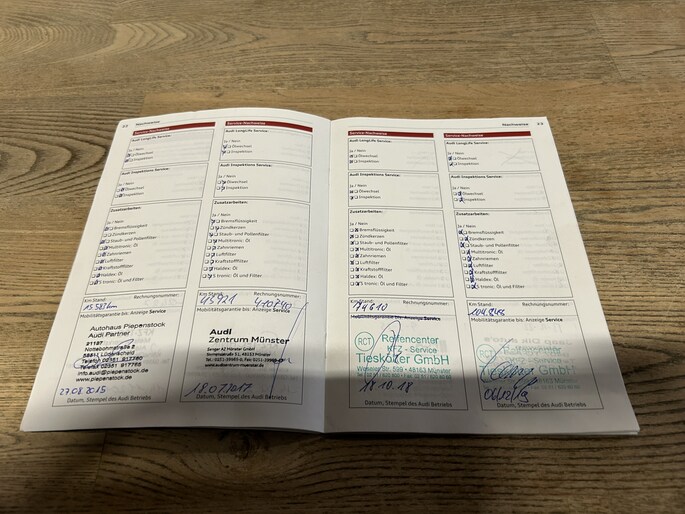 22
Nachweise
Service-Nachweise
Audi LongLife Service:
Ja / Nein
Ölwechsel
Inspektion
Audi Inspektions Service:
Ja / Nein
Ölwechsel
Inspektion
Zusatzarbeiten:
Ja / Nein
Bremsflüssigkeit
Zündkerzen
Staub- und Pollenfilter
Multitronic: Öl
Zahnriemen
Luftfilter
Kraftstofffilter
Haldex: Öl
S tronic: Öl und Filter
Km Stand:
Rechnungsnummer:
Mobilitätsgarantie bis: Anzeige Service
Autohaus Piepenstock
Audi Partner
Lüdenscheid
www.piepenstock.de
27.08.2015
Datum, Stempel des Audi Betriebs
Service-Nachweise
Audi LongLife Service:
Ja / Nein
Ölwechsel
Inspektion
Audi Inspektions Service:
Ja / Nein
Ölwechsel
Inspektion
Zusatzarbeiten:
Ja / Nein
Bremsflüssigkeit
Zündkerzen
Staub- und Pollenfilter
Multitronic: Öl
Zahnriemen
Luftfilter
Kraftstofffilter
Haldex: Öl
S tronic: Öl und Filter
Km Stand:
Rechnungsnummer:
45921
Mobilitätsgarantie bis: Anzeige Service
Audi
Zentrum Münster
Datum, Stempel des Audi Betriebs
Nachweise
23
Service-Nachweise
Audi LongLife Service:
Ja / Nein
Ölwechsel
Inspektion
Audi Inspektions Service:
Ja / Nein
Ölwechsel
Inspektion
Zusatzarbeiten:
Ja / Nein
Bremsflüssigkeit
Zündkerzen
Staub- und Pollenfilter
Multitronic: Öl
Zahnriemen
Luftfilter
Kraftstofffilter
Haldex: Öl
S tronic: Öl und Filter
Km Stand:
Rechnungsnummer:
74610
Mobilitätsgarantie bis: Anzeige Service
RCT
Reifencenter
KFZ - Service
Tiesközer GmbH
Str. 599 • 48163 Münster
18.10.18
Datum, Stempel des Audi Betriebs
Service-Nachweise
Audi LongLife Service:
Ja / Nein
Ölwechsel
Inspektion
Audi Inspektions Service:
Ja / Nein
Ölwechsel
Inspektion
Zusatzarbeiten:
Ja / Nein
Bremsflüssigkeit
Zündkerzen
Staub- und Pollenfilter
Multitronic: Öl
Zahnriemen
Luftfilter
Kraftstofffilter
Haldex: Öl
S tronic: Öl und Filter
Km Stand:
Rechnungsnummer:
Mobilitätsgarantie bis: Anzeige Service
RCT
Reifencenter
GmbH
Datum, Stempel des Audi Betriebs